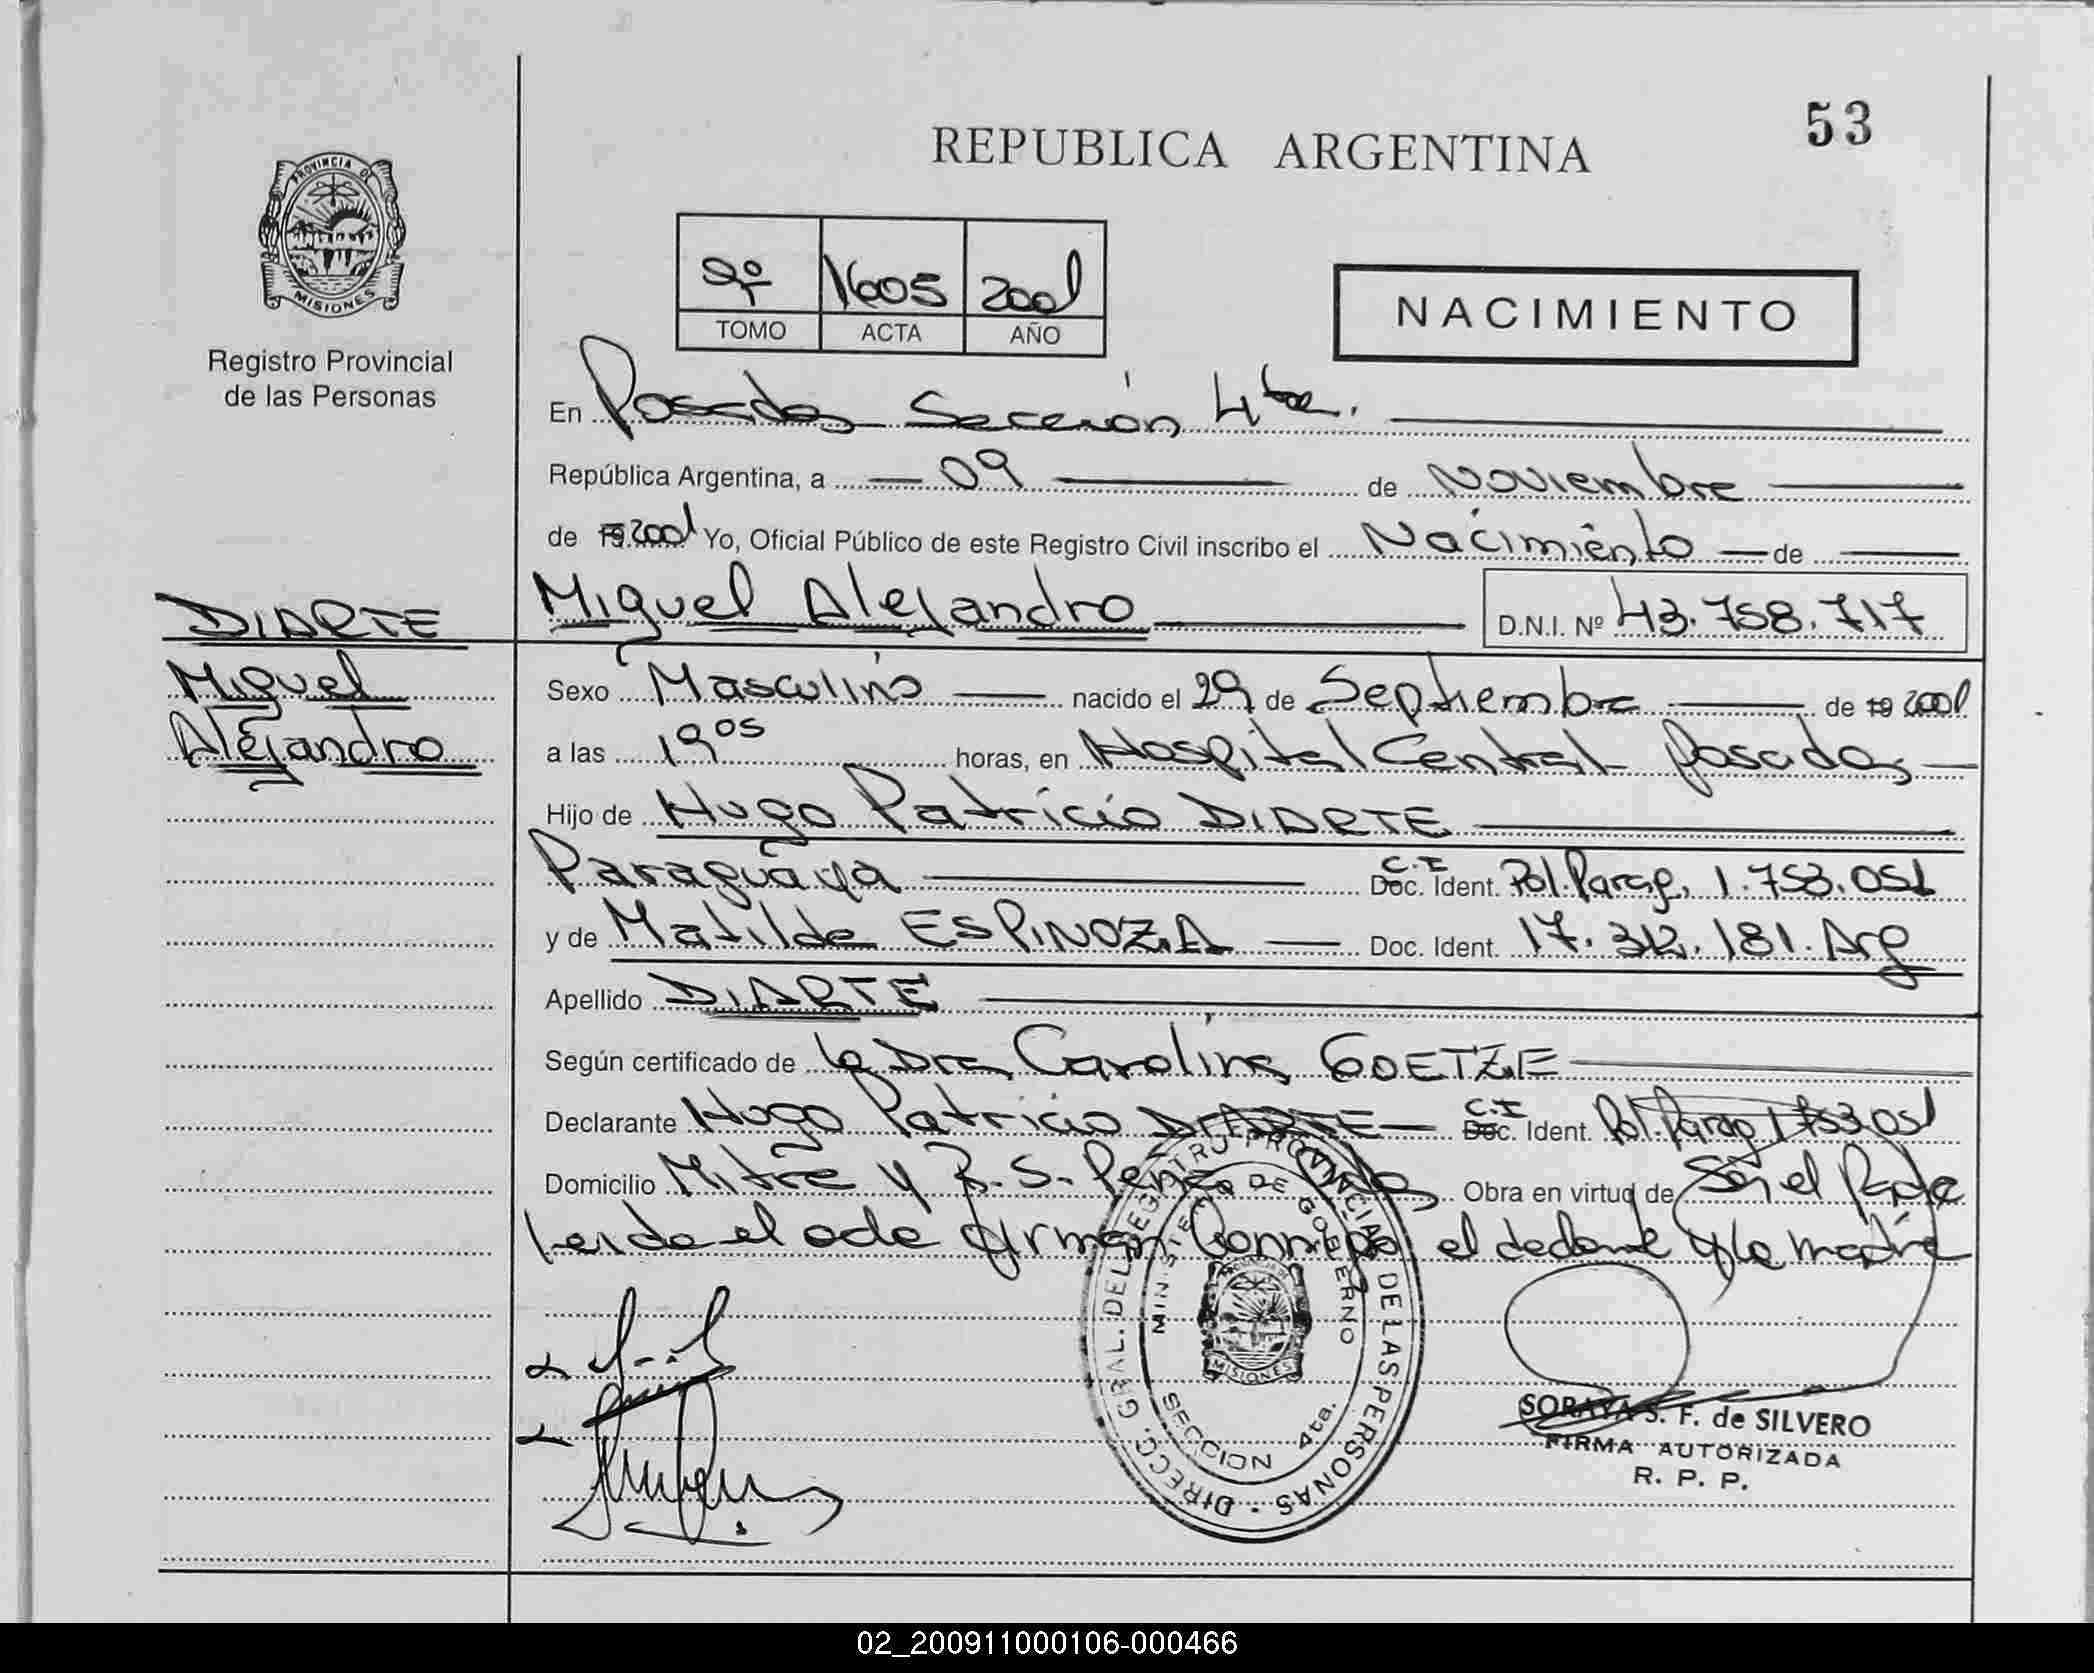 53
REPUBLICA ARGENTINA
PROVINCIA DE
MISIONES
Registro Provincial
de las Personas
9º 1605 2001
TOMO ACTA AÑO
NACIMIENTO
En Posadas Sección 4ta.
República Argentina, a 09 de Noviembre
de 19 2001 Yo, Oficial Público de este Registro Civil inscribo el Nacimiento de
Miguel Alejandro D.N.I. Nº 43.758.717
DIARTE
Miguel
Alejandro
Sexo Masculino nacido el 29 de Septiembre de 19 2001
a las 19 05 horas, en Hospital Central Posadas
Hijo de Hugo Patricio DIARTE
Paraguaya C.I Doc. Ident. Pol. Parag. 1.753.051
y de Matilde ESPINOZA Doc. Ident. 17.312.181. Arg
Apellido DIARTE
Según certificado de la Dra Carolina GOETZE
Declarante Hugo Patricio DIARTE C.I Doc. Ident. Pol. Parag 1753051
Domicilio Mitre y R. S. Peña Obra en virtud de Ser el Padre
Leída el acta firman Conmigo el declarante y la madre
DIRECC. GRAL. DEL REGISTRO PROVINCIAL DE LAS PERSONAS
MINISTERIO DE GOBIERNO
MISIONES
SECCION 4ta.
SORAYA S. F. de SILVERO
FIRMA AUTORIZADA
R. P. P.
02_200911000106-000466